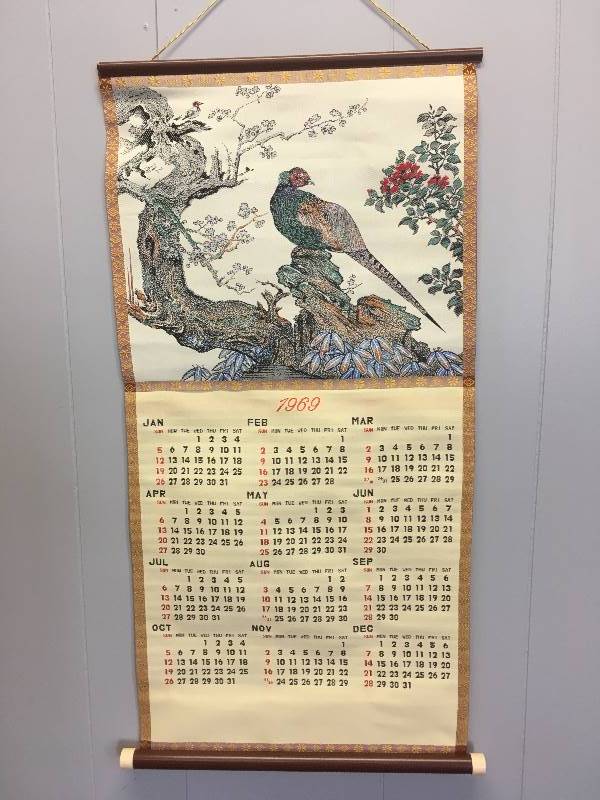 1969
JAN
SUN MON TUE WED THU FRI SAT
1 2 3 4
5 6 7 8 9 10 11
12 13 14 15 16 17 18
19 20 21 22 23 24 25
26 27 28 29 30 31
FEB
SUN MON TUE WED THU FRI SAT
1
2 3 4 5 6 7 8
9 10 11 12 13 14 15
16 17 18 19 20 21 22
23 24 25 26 27 28
MAR
SUN MON TUE WED THU FRI SAT
1
2 3 4 5 6 7 8
9 10 11 12 13 14 15
16 17 18 19 20 21 22
23/30 24/31 25 26 27 28 29
APR
SUN MON TUE WED THU FRI SAT
1 2 3 4 5
6 7 8 9 10 11 12
13 14 15 16 17 18 19
20 21 22 23 24 25 26
27 28 29 30
MAY
SUN MON TUE WED THU FRI SAT
1 2 3
4 5 6 7 8 9 10
11 12 13 14 15 16 17
18 19 20 21 22 23 24
25 26 27 28 29 30 31
JUN
SUN MON TUE WED THU FRI SAT
1 2 3 4 5 6 7
8 9 10 11 12 13 14
15 16 17 18 19 20 21
22 23 24 25 26 27 28
29 30
JUL
SUN MON TUE WED THU FRI SAT
1 2 3 4 5
6 7 8 9 10 11 12
13 14 15 16 17 18 19
20 21 22 23 24 25 26
27 28 29 30 31
AUG
SUN MON TUE WED THU FRI SAT
1 2
3 4 5 6 7 8 9
10 11 12 13 14 15 16
17 18 19 20 21 22 23
24/31 25 26 27 28 29 30
SEP
SUN MON TUE WED THU FRI SAT
1 2 3 4 5 6
7 8 9 10 11 12 13
14 15 16 17 18 19 20
21 22 23 24 25 26 27
28 29 30
OCT
SUN MON TUE WED THU FRI SAT
1 2 3 4
5 6 7 8 9 10 11
12 13 14 15 16 17 18
19 20 21 22 23 24 25
26 27 28 29 30 31
NOV
SUN MON TUE WED THU FRI SAT
1
2 3 4 5 6 7 8
9 10 11 12 13 14 15
16 17 18 19 20 21 22
23/30 24 25 26 27 28 29
DEC
SUN MON TUE WED THU FRI SAT
1 2 3 4 5 6
7 8 9 10 11 12 13
14 15 16 17 18 19 20
21 22 23 24 25 26 27
28 29 30 31